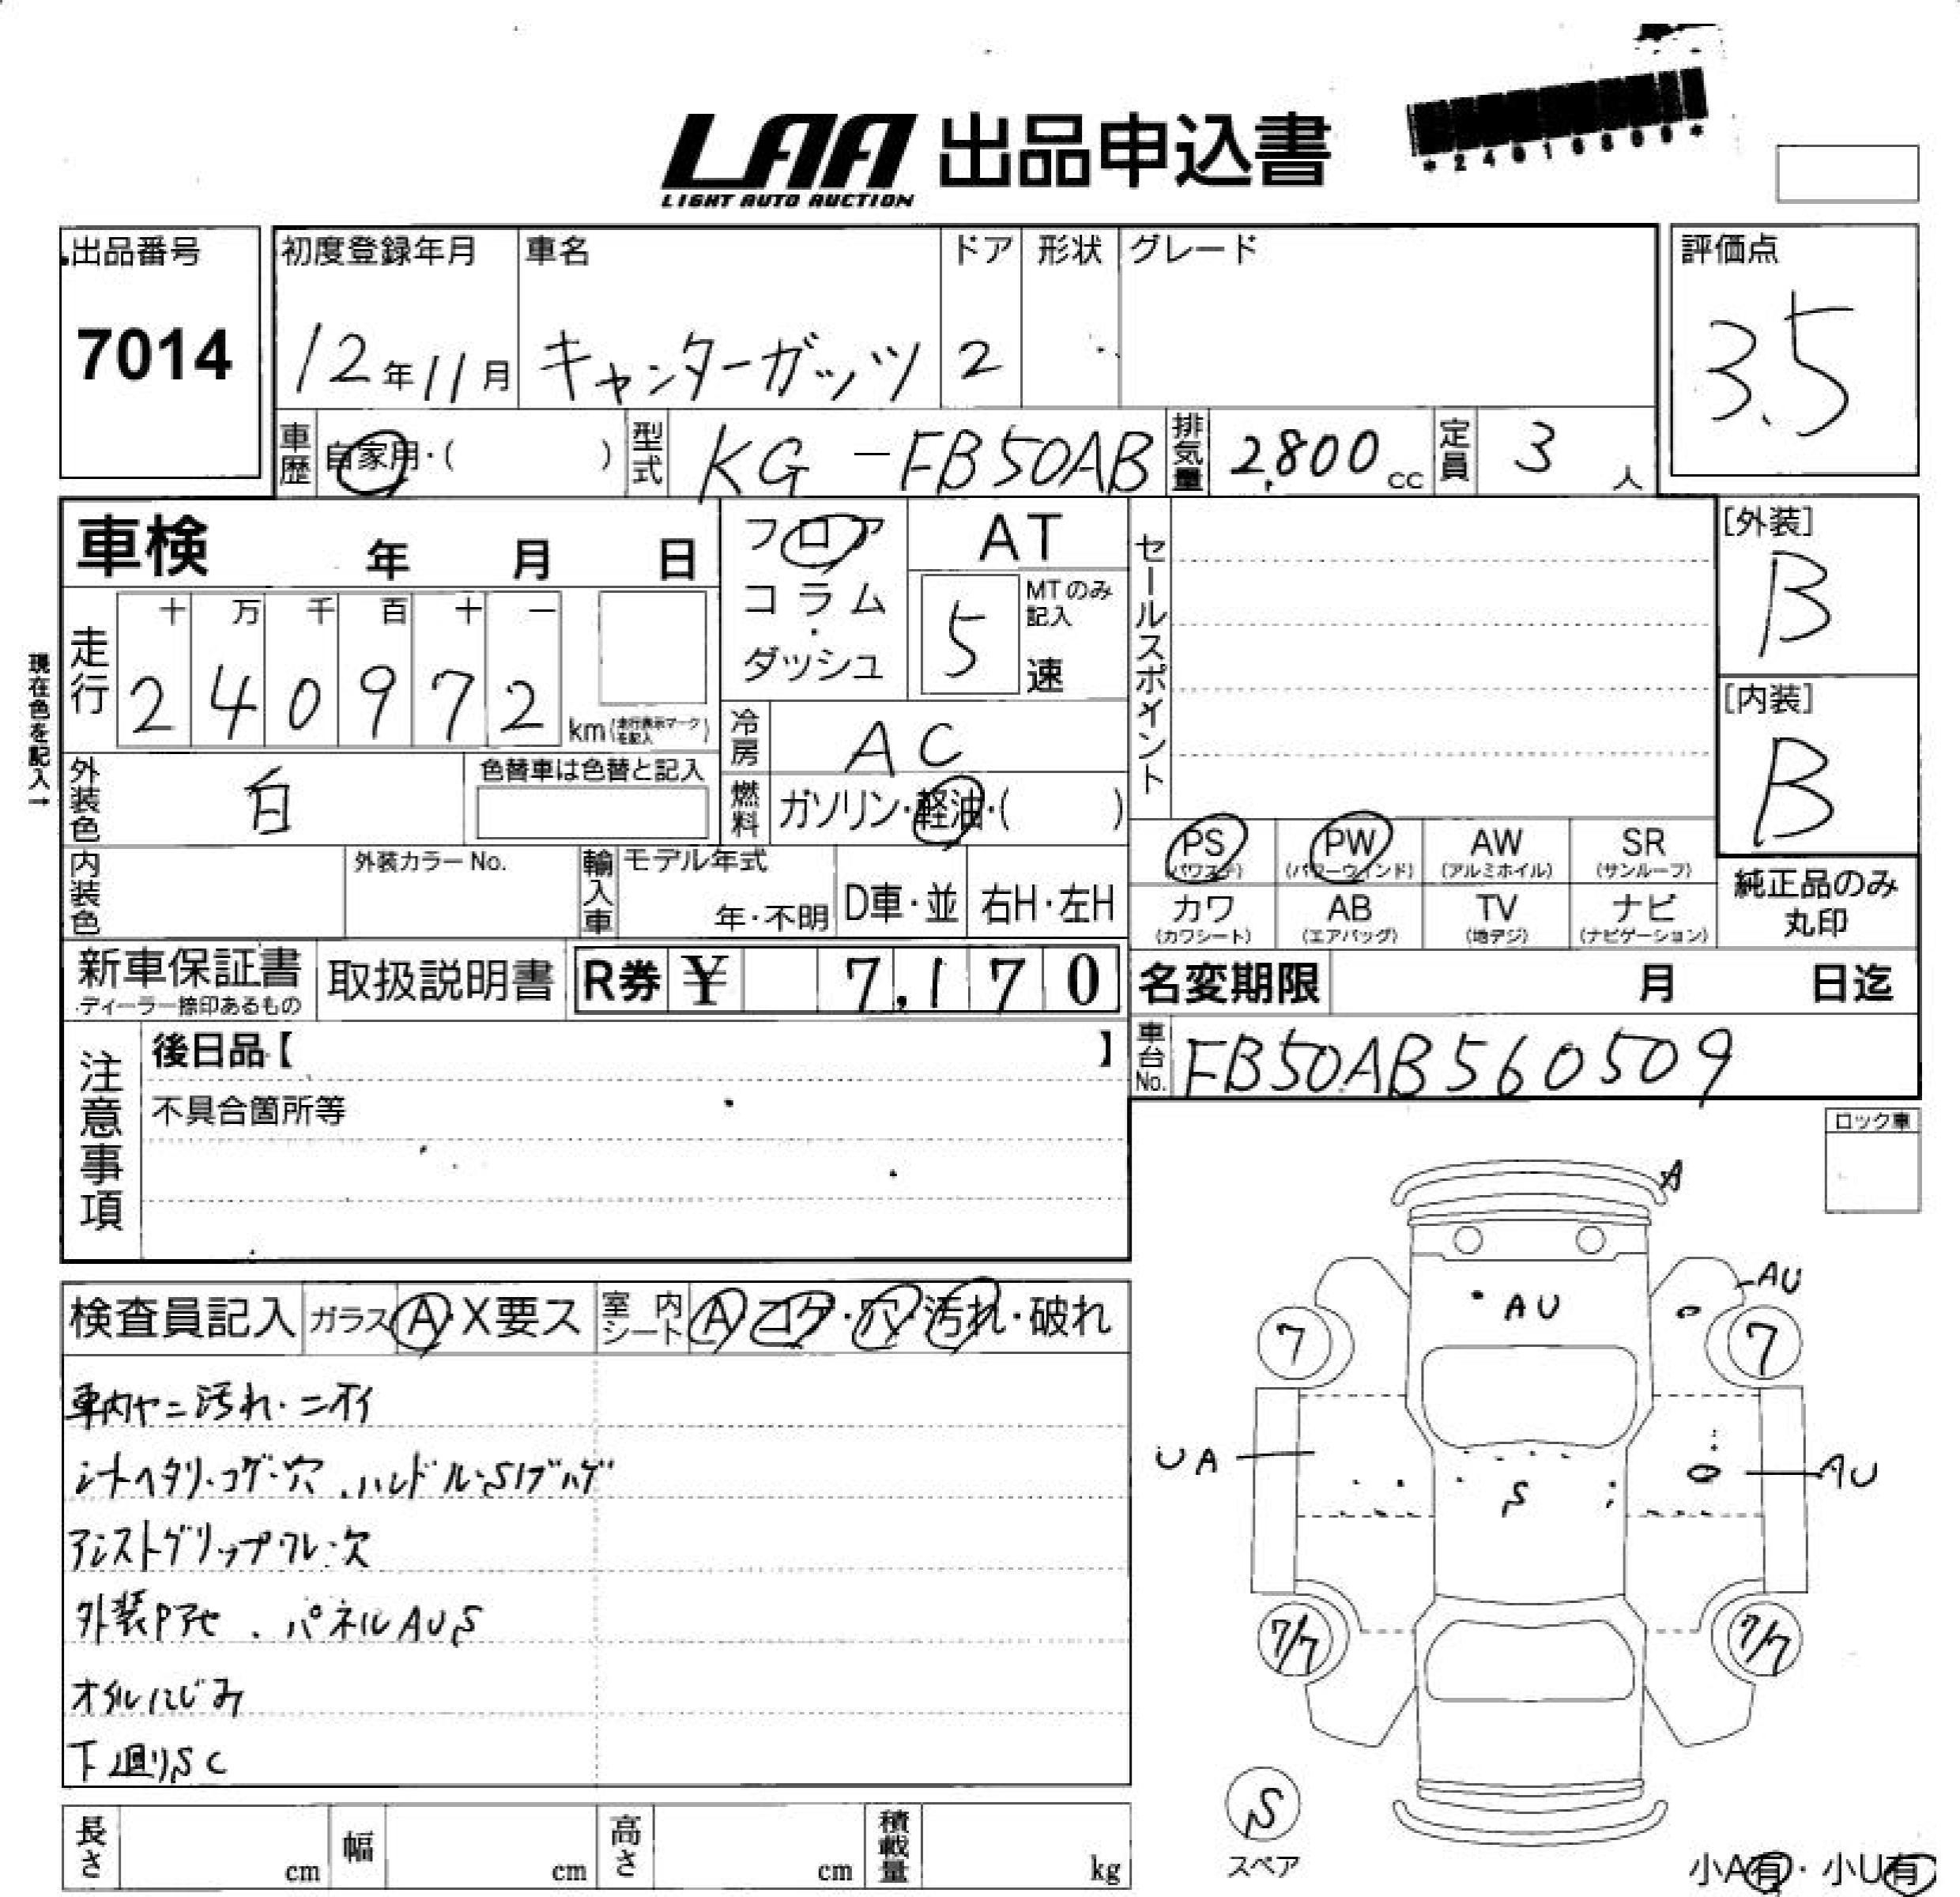 LAA 出品申込書
LIGHT AUTO AUCTION
*24016809*
出品番号
7014
初度登録年月
12年11月
車名
キャンターガッツ
ドア
2
形状
グレード
評価点
3.5
車歴
自家用・( )
型式
KG-FB50AB
排気量
2,800 cc
定員
3 人
車検 年 月 日
フロア
コラム
・
ダッシュ
AT
5
MTのみ
記入
速
セールスポイント
[外装]
B
[内装]
B
現在色を記入→
走行
十 万 千 百 十 一
2 4 0 9 7 2
km(走行表示マークを記入)
冷房
AC
外装色
白
色替車は色替と記入
燃料
ガソリン・軽油・( )
PS
(パワステ)
PW
(パワーウィンド)
AW
(アルミホイル)
SR
(サンルーフ)
カワ
(カワシート)
AB
(エアバッグ)
TV
(地デジ)
ナビ
(ナビゲーション)
純正品のみ
丸印
内装色
外装カラーNo.
輸入車
モデル年式
年・不明
D車・並
右H・左H
新車保証書
ディーラー捺印あるもの
取扱説明書
R券 ¥ 7,170
名変期限 月 日迄
車台No.
FB50AB560509
注意事項
後日品【 】
不具合箇所等
ロック車
検査員記入
ガラス A・X要ス
室内シート A コゲ・穴・汚れ・破れ
車内ヤニ汚れ・ニオイ
シートヘタリ・コゲ・穴、ハンドル・S1ブハゲ
アシストグリップワレ・欠
外装Pアセ、パネルAUS
オイルにじみ
下廻りSC
A
AU
AU
7
7
UA
S
AU
7/7
7/7
S
スペア
小A有・小U有
長さ cm
幅 cm
高さ cm
積載量 kg